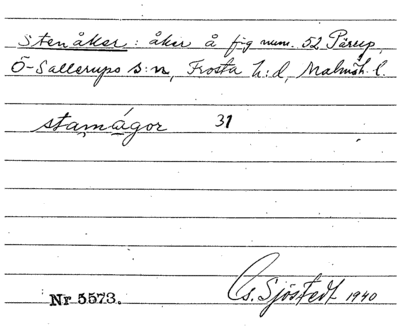 Stenåker: åker å fig num. 52 Pårup,
Ö-Sallerups s:n, Frosta h:d, Malmöh. l.
stamágor 31
Nr 5573. Gs. Sjöstedt 1940